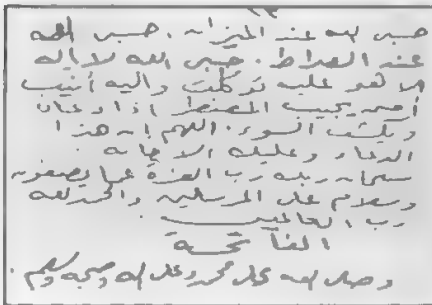 ٢٣
حسبي الله عند الميزان. حسبي الله
عند الصراط. حسبي الله لا إله
الا هو عليه توكلت واليه أنيب
أمن يجيب المضطر اذا دعاه
ويكشف السوء. اللهم إن هذا
الدعاء وعليك الاجابة.
سبحان ربك رب العزة عما يصفون
وسلام على المرسلين والحمد لله
رب العالمين.
الفاتحة
وصلى الله على محمد وعلى اله وصحبه وسلم.